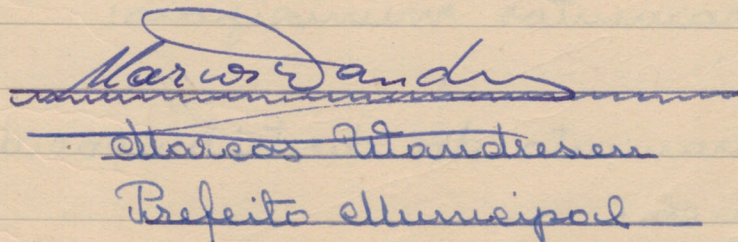 Marcos Wandr
Marcos Wandresen
Prefeito Municipal